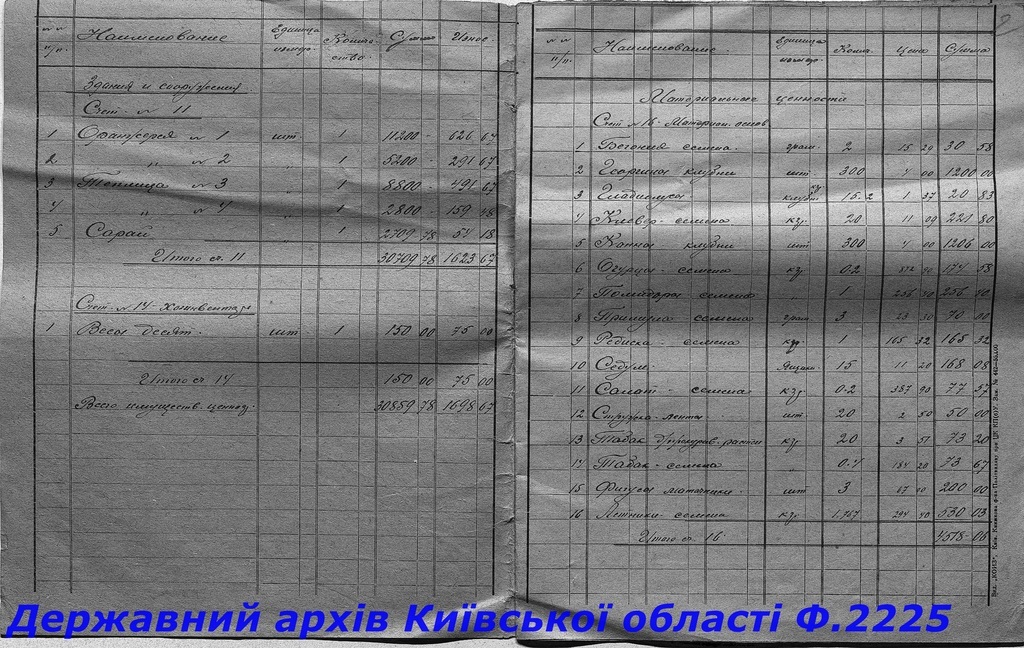 №№ п/п. Наименование Единица измер. Колич-ство. Сумма Износ.
Здания и сооружения
Счет № 11
1 Оранжерея № 1 шт. 1 11200 - 626 67
2 " № 2 1 5200 - 291 67
3 Теплица № 3 " 1 8800 - 491 67
4 " № 4 " 1 2800 - 159 48
5 Сарай " 1 2709 78 54 18
Итого сч. 11 30709 78 1623 67
Счет № 14
1 Весы десят. шт. 1 150 00 75 00
Итого сч 14 150 00 75 00
Всего имуществ. ценност. 30859 78 1698 67
№ № п/п. Наименование Единица измер. Колич. Цена Сумма
Материальные ценности
Счет № 16 - Материал. основ.
1 Бегония семена грам. 2 15 29 30 58
2 клубни шт. 300 4 00 1200 00
3 Гладиолусы клубни 15.2 1 37 20 83
4 Клевер - семена кг. 20 11 09 221 80
5 Канны клубни шт 300 4 00 1206 00
6 Огурцы - семена кг 0.2 872 90 174 58
7 Помидоры семена 1 256 256
8 Примула семена грам 3 23 30 70 00
9 Редиска - семена кг. 1 165 32 165 32
10 Седум. Ящики 15 11 20 168 08
11 Салат - семена кг. 0.2 387 90 77 57
12 Стружка - лента шт. 20 2 50 50 00
13 Табак кг. 20 3 51 73 20
14 Табак - семена " 0.4 184 20 73 67
15 Фикусы маточники шт 3 67 00 200 00
16 Летники - семена кг. 294 90 530 03
Итого сч. 16 4518 06
Державний архів Київської області Ф.2225